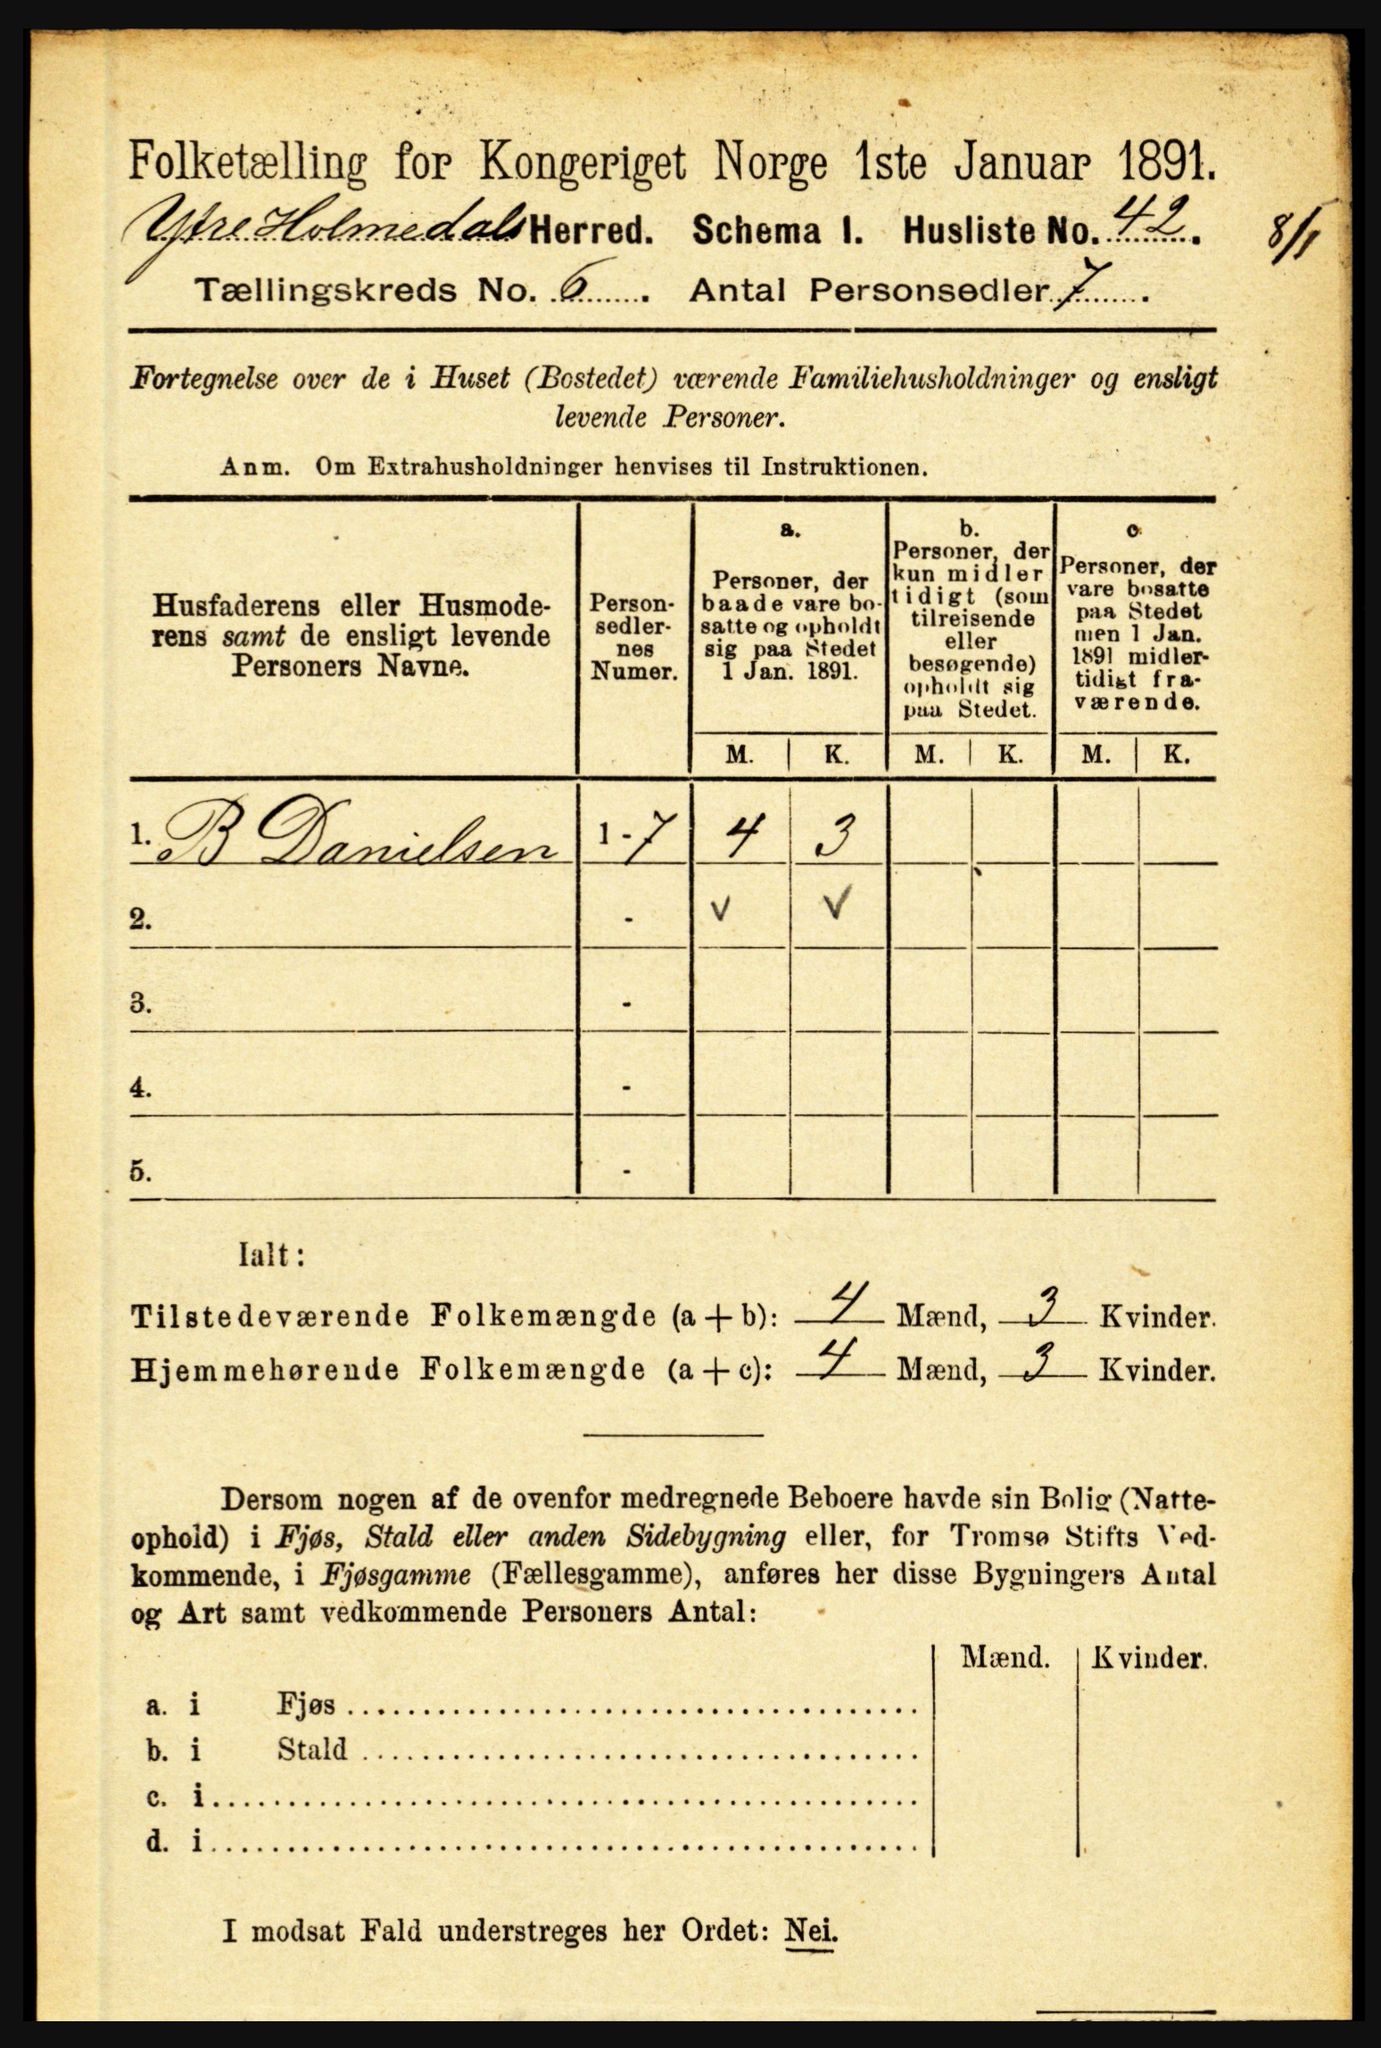 Folketælling for Kongeriget Norge 1ste Januar 1891.
Ytre Holmedals Herred. Schema 1. Husliste No. 42.
8/1
Tællingskreds No. 6. Antal Personsedler 7.
Fortegnelse over de i Huset (Bostedet) værende Familiehusholdninger og ensligt
levende Personer.
Anm. Om Extrahusholdninger henvises til Instruktionen.
Husfaderens eller Husmode-
rens samt de ensligt levende
Personers Navne.
Person-
sedler-
nes
Numer.
a.
Personer, der
baade vare bo-
satte og opholdt
sig paa Stedet
1 Jan. 1891.
b.
Personer, der
kun midler
tidigt (som
tilreisende
eller
besøgende)
opholdt sig
paa Stedet.
c.
Personer, der
vare bosatte
paa Stedet
men 1 Jan.
1891 midler-
tidigt fra-
værende.
M. K. M. K. M. K.
1. B Danielsen 1-7 4 3
2. - √ √
3. -
4. -
5. -
Ialt:
Tilstedeværende Folkemængde (a + b): 4 Mænd, 3 Kvinder.
Hjemmehørende Folkemængde (a + c): 4 Mænd, 3 Kvinder.
Dersom nogen af de ovenfor medregnede Beboere havde sin Bolig (Natte-
ophold) i Fjøs, Stald eller anden Sidebygning eller, for Tromsø Stifts Ved-
kommende, i Fjøsgamme (Fællesgamme), anføres her disse Bygningers Antal
og Art samt vedkommende Personers Antal:
Mænd. Kvinder.
a. i Fjøs
b. i Stald
c. i
d. i
I modsat Fald understreges her Ordet: Nei.